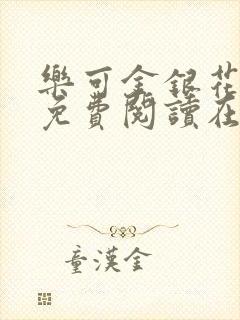 樂可金銀花
免費閱讀在
童漢金